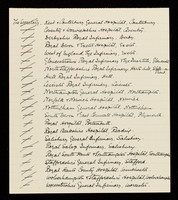 The Secretary Kent & Canterbury General Hospital, Canterbury
County & Monmouthshire Hospital,
Derbyshire Royal Infirmary, Derby
Royal Devon & Exeter Hospital, Exeter
West of England Eye Infirmary, Exeter
Gloucestershire Royal Infirmary & Eye Institution,
Northamptonshire Royal Infirmary
Hull Royal Infirmary, Hull
Leicester Royal Infirmary, Leicester
Northampton General Hospital, Northampton
Norfolk & Norwich Hospital, Norwich
Nottingham General Hospital, Nottingham
South Devon & East Cornwall Hospital, Plymouth
Royal Hospital Portsmouth
Royal Berkshire Hospital, Reading
Salisbury General Infirmary, Salisbury
Royal Salop Infirmary,
Royal South Hants & Southampton Hospital, Southampton
Staffordshire General Infirmary, Stafford
Royal Hants County Hospital, Winchester
Wolverhampton & Staffordshire Hospital, Wolverhampton
Worcester General Infirmary, Worcester